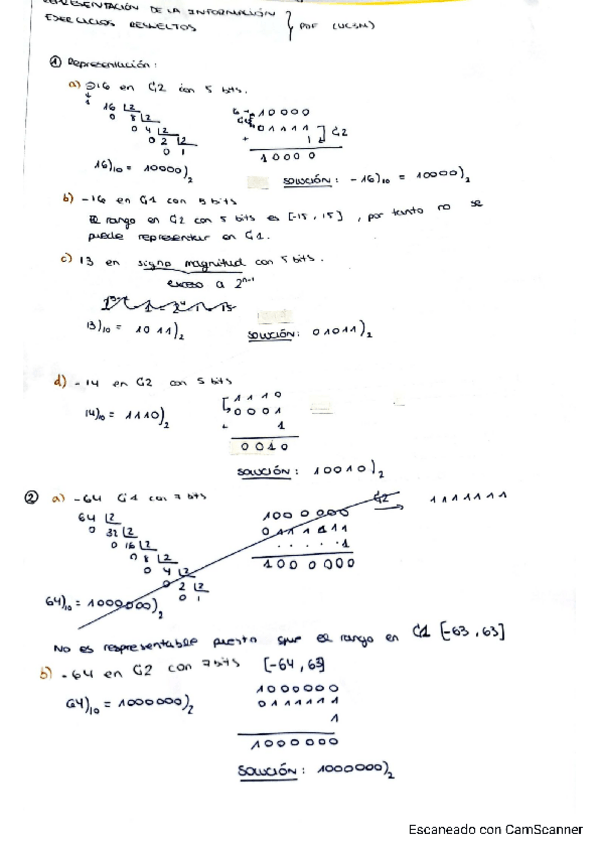 REPRESENTACIÓN DE LA INFORMACIÓN
EJERCICIOS RESUELTOS } PDF (UC3M)
① Representación:
a) -16 en C2 con 5 bits.
16 |2
0 8 |2
0 4 |2
0 2 |2
0 1
10000
01111
+ 1 ] C2
10000
16)10 = 10000)2
SOLUCIÓN: -16)10 = 10000)2
b) -16 en C1 con 5 bits
El rango en C2 con 5 bits es [-15, 15], por tanto no se
puede representar en C1.
c) 13 en signo magnitud con 5 bits.
exceso a 2^n-1
13)10 = 1011)2
SOLUCIÓN: 01011)2
d) -14 en C2 con 5 bits
14)10 = 1110)2
1110
0001
+ 1
0010
SOLUCIÓN: 10010)2
② a) -64 C1 con 7 bits
64 |2
0 32 |2
0 16 |2
0 8 |2
0 4 |2
0 2 |2
0 1
1000000
0111111
.....1
1000000
C2
1111111
64)10 = 1000000)2
No es respresentable puesto que el rango en C1 [-63, 63]
b) -64 en C2 con 7 bits [-64, 63]
64)10 = 1000000)2
1000000
0111111
1
1000000
SOLUCIÓN: 1000000)2
Escaneado con CamScanner